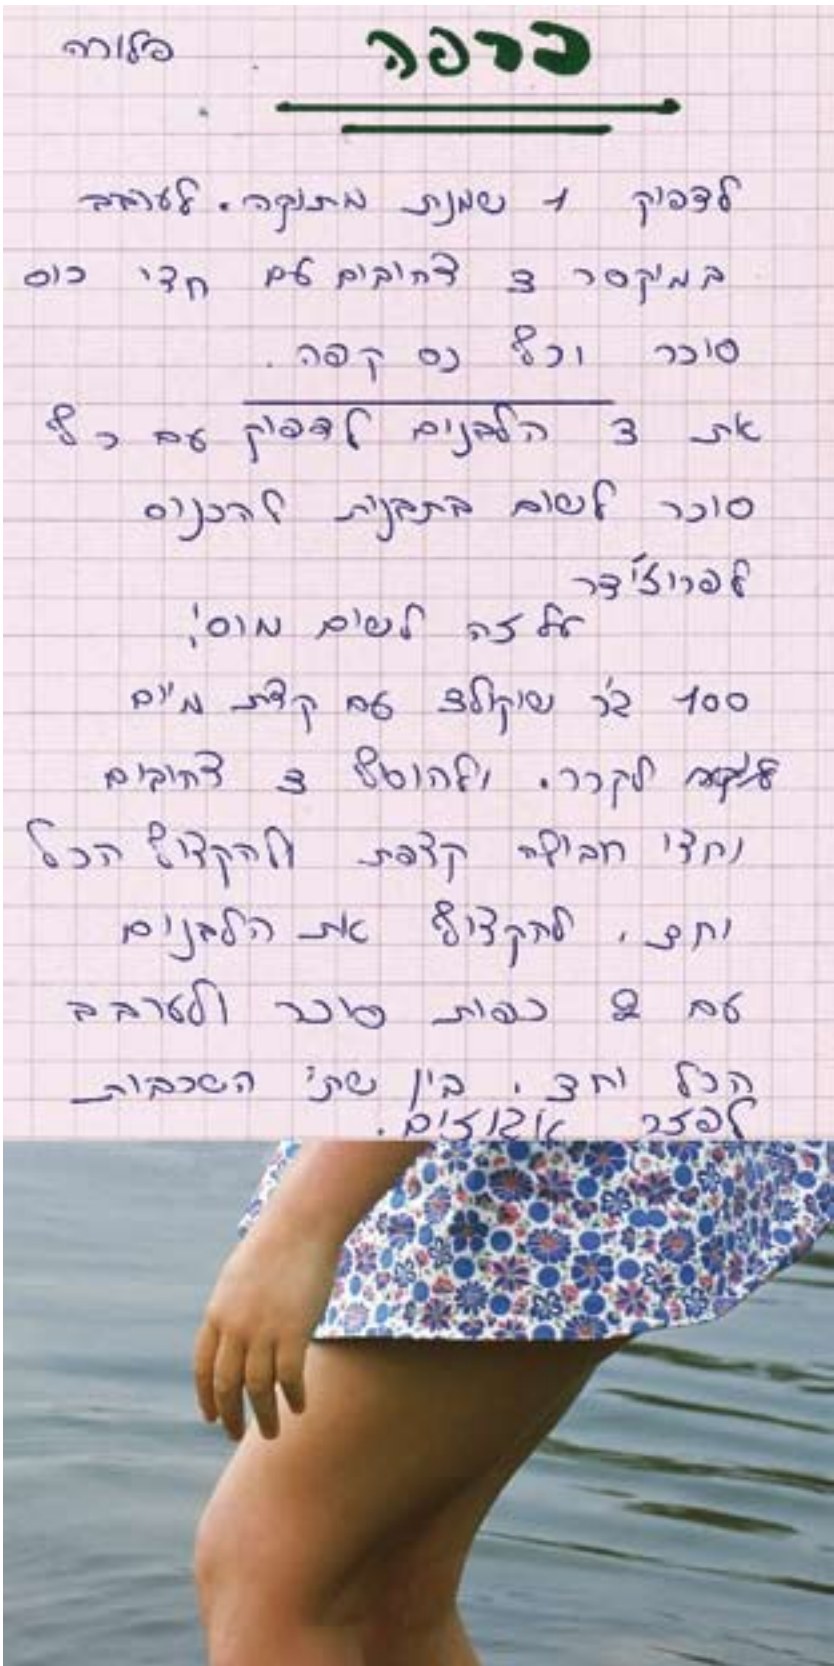 פרפה
פלורה
לדפוק 1 שמנת מתוקה. לערבב
במיקסר 3 צהובים עם חצי כוס
סוכר וכף נס קפה.
את 3 הלבנים לדפוק עם כף
סוכר לשים בתבנית להכניס
לפריז'ידר
על זה לשים מוס:
100 גר' שוקולד עם קצת מים
לקרר. ולהוסיף 3 צהובים
וחצי חבילה קצפת ולהקציף הכל
יחד. להקציף את הלבנים
עם 2 כפות סוכר ולערבב
הכל יחד. בין שתי השכבות
לפזר אגוזים.